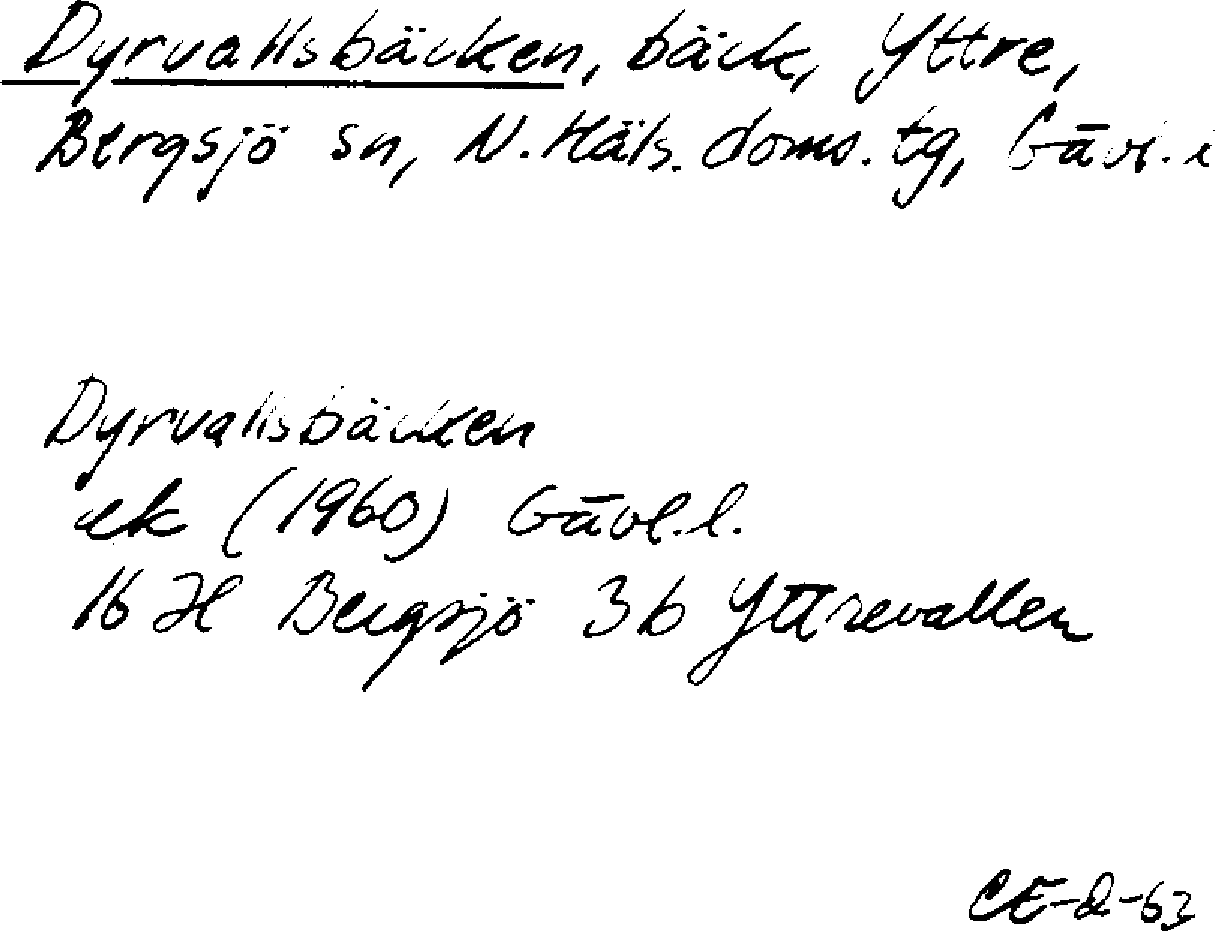 Dyrvallsbäcken, bäck, Yttre,
Bergsjö sn, N. Häls. doms. tg, Gävl. l
Dyrvallsbäcken
ek (1960) Gävl. l.
16 H Bergsjö 3b Yttrevallen
CE-R-63